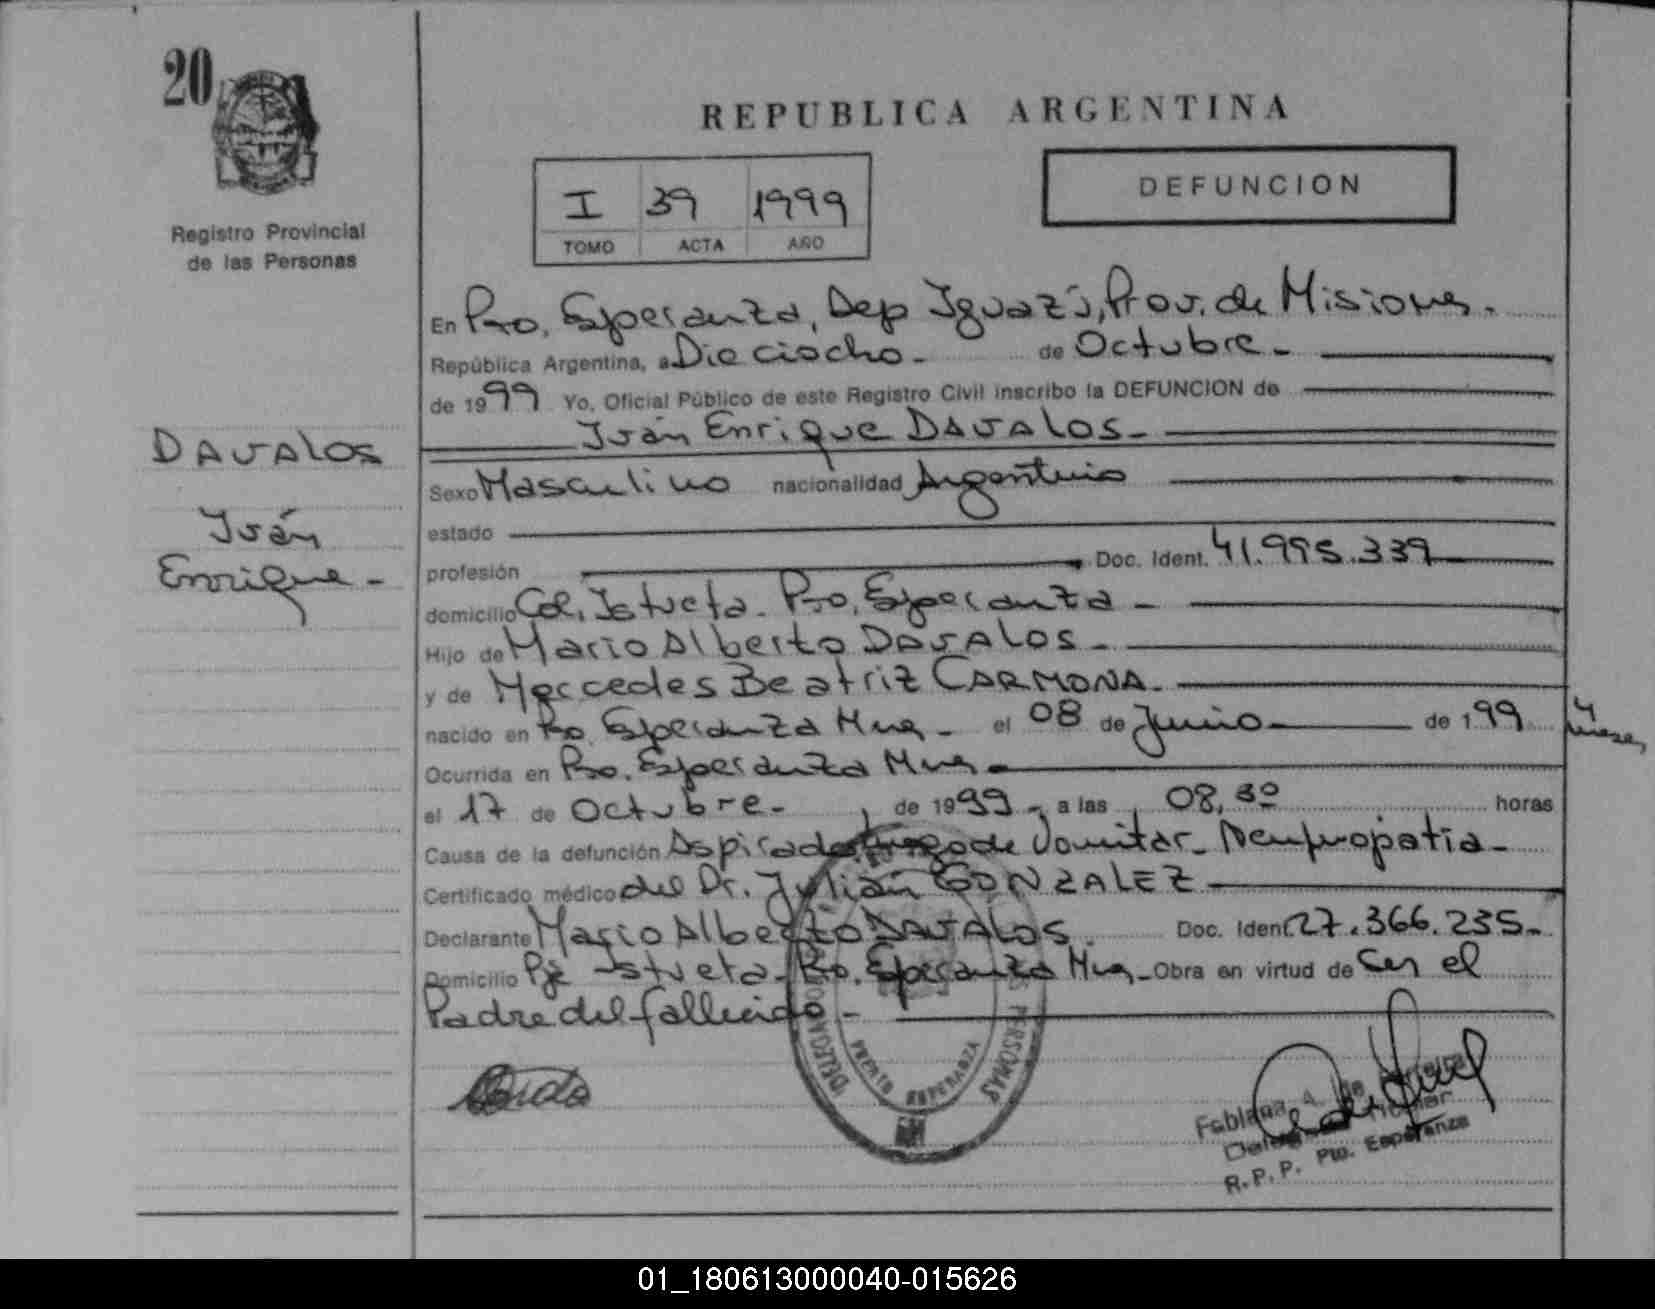 20
Registro Provincial
de las Personas
DAVALOS
Iván
Enrique -
REPUBLICA ARGENTINA
I 39 1999
TOMO ACTA AÑO
DEFUNCION
En Pto. Esperanza, Dep Iguazú, Prov. de Misiones.
República Argentina, a Dieciocho - de Octubre -
de 1999 Yo, Oficial Público de este Registro Civil inscribo la DEFUNCION de
Iván Enrique DAVALOS -
Sexo Masculino nacionalidad Argentino
estado
profesión Doc. Ident. 41.995.339
domicilio Col. Istueta - Pto. Esperanza -
Hijo de Mario Alberto DAVALOS -
y de Mercedes Beatriz CARMONA -
nacido en Pto. Esperanza Mnes - el 08 de Junio de 199 4 meses
Ocurrida en Pto. Esperanza Mnes -
el 17 de Octubre - de 1999 - a las 08,30 horas
Causa de la defunción de Vomitar -
Certificado médico del Dr. Julián GONZALEZ
Declarante Mario Alberto DAVALOS Doc. Ident. 27.366.235 -
Domicilio Pje Istueta - Pto. Esperanza Mnes - Obra en virtud de Ser el
Padre del fallecido -
PERSONAS
PUERTO ESPERANZA
Fabiana A. de
Titular
R.P.P. Pto. Esperanza
01_180613000040-015626